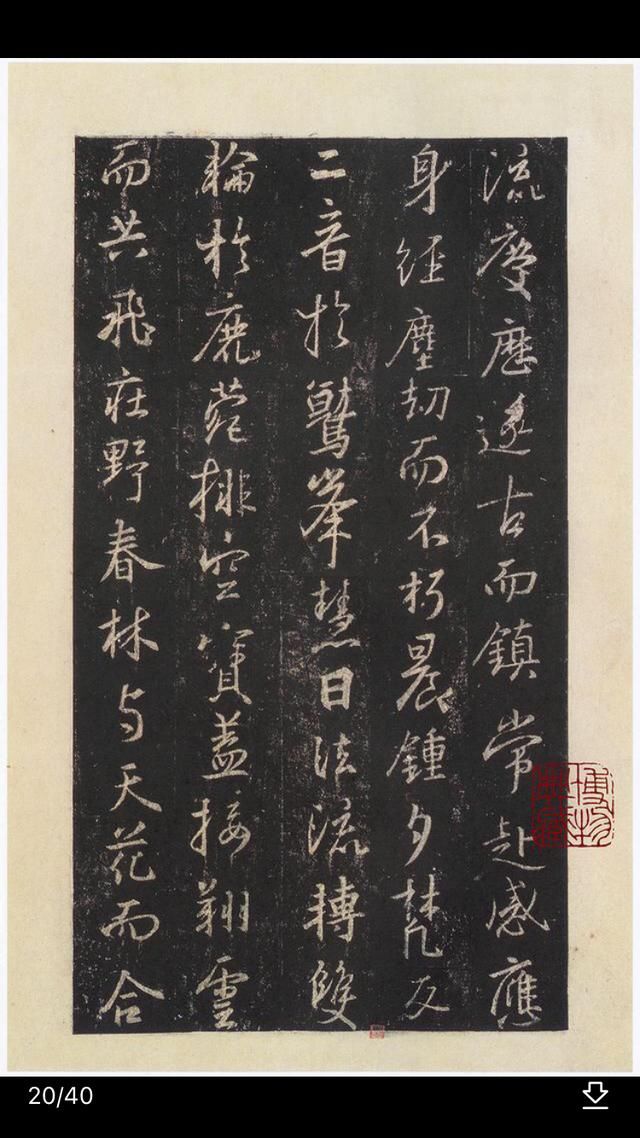 流慶歷遂古而鎮常赴感應
身經塵劫而不朽晨鍾夕梵交
二音於鷲峯慧日法流轉雙
輪於鹿菀排空寶蓋接翔雲
而共飛莊野春林与天花而合
20/40